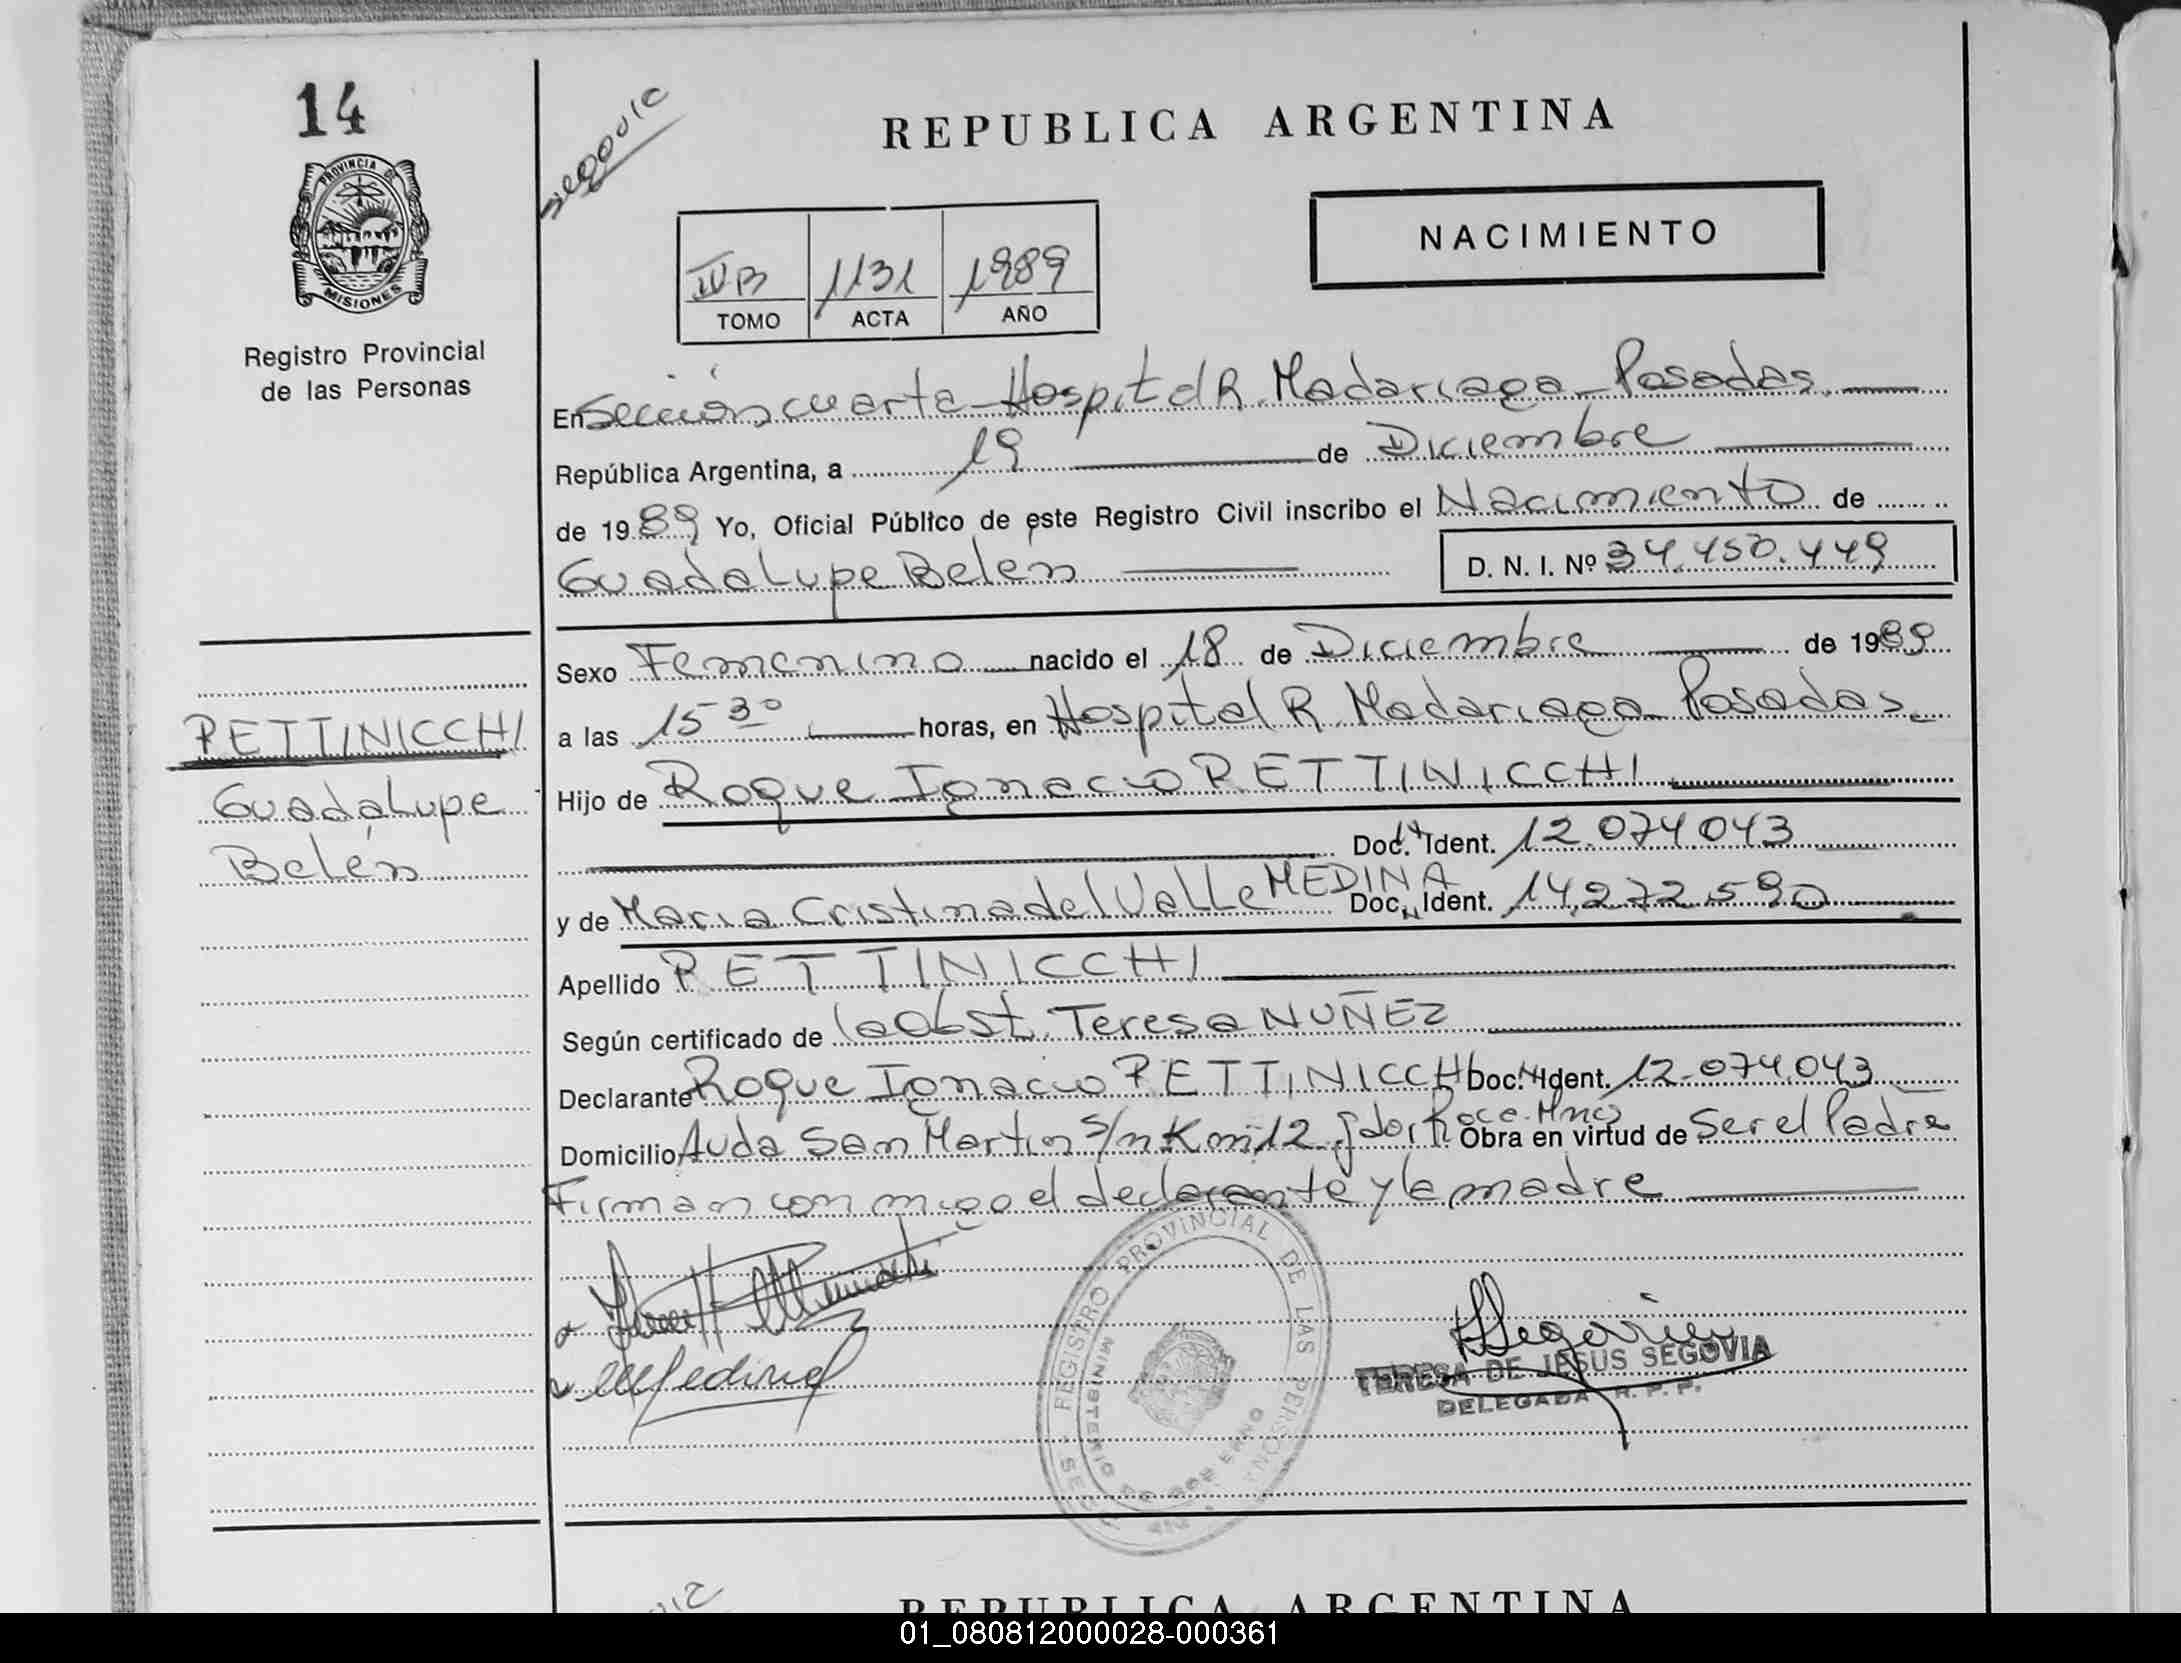 14
PROVINCIA DE
MISIONES
Registro Provincial
de las Personas
PETTINICCHI
Guadalupe
Belén
Segovia
REPUBLICA ARGENTINA
NACIMIENTO
IV B 1131 1989
TOMO ACTA AÑO
En Sección cuarta - Hospital R. Madariaga - Posadas.
República Argentina, a 19 de Diciembre
de 1989 Yo, Oficial Público de este Registro Civil inscribo el Nacimiento de
Guadalupe Belén D. N. I. Nº 34.450.449
Sexo Femenino nacido el 18 de Diciembre de 1989
a las 15 30 horas, en Hospital R. Madariaga Posadas
Hijo de Roque Ignacio PETTINICCHI
Doc. Ident. 12.074.043
y de Maria Cristina del Valle MEDINA Doc. Ident. 14.272.590
Apellido PETTINICCHI
Según certificado de la Obst. Teresa NUÑEZ
Declarante Roque Ignacio PETTINICCHI Doc. Ident. 12.074.043
Domicilio Avda San Martin s/n Km 12 Gdor Roca. Mnes Obra en virtud de Ser el Padre
Firman conmigo el declarante y la madre
REGISTRO PROVINCIAL DE LAS PERSONAS
MINISTERIO DE GOBIERNO
MMedina
TSegovia
TERESA DE JESUS SEGOVIA
DELEGADA R. P. P.
REPUBLICA ARGENTINA
01_080812000028-000361